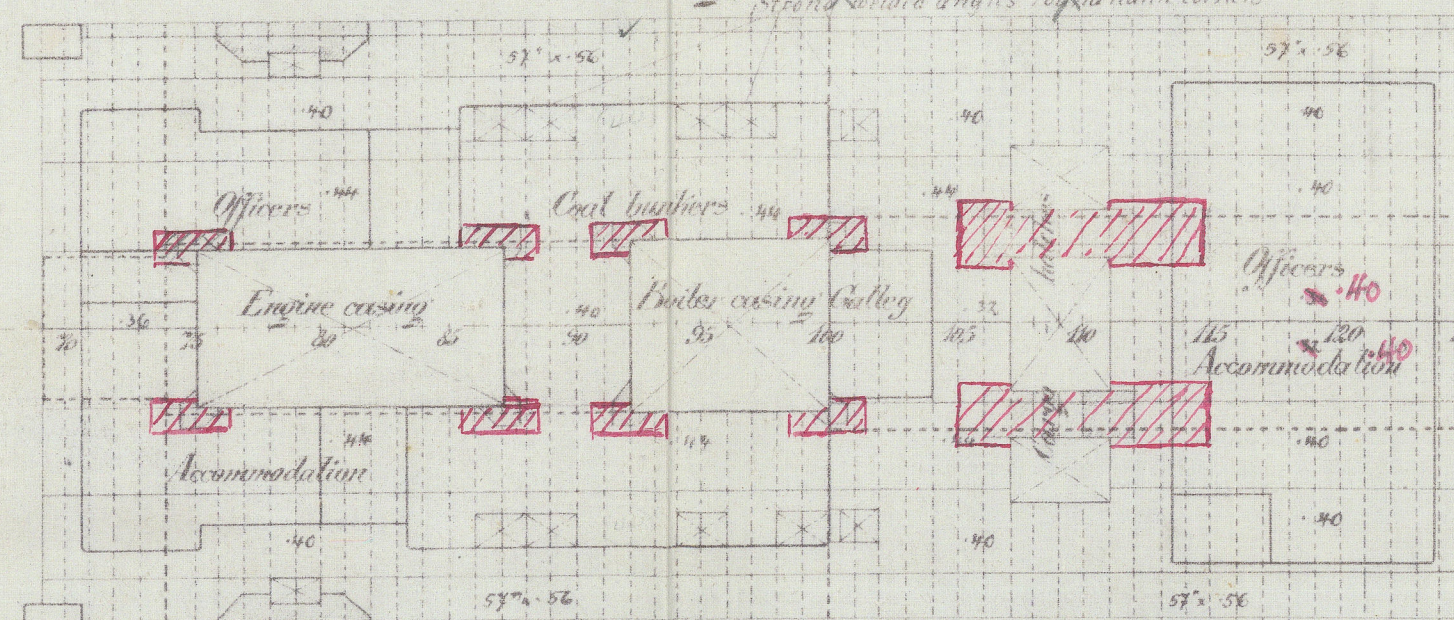 Strong
57" x .56
57" x .56
.40
.40
.40
.40
Officers
.44
Coal bunkers
.44
.44
Officers
.40
Engine casing
Boiler casing
Galley
.36
.40
.32
70
75
80
85
90
95
100
105
110
115
120
.32
.40
Accommodation
.44
.44
.40
Accommodation
.40
.40
.40
57" x .56
57" x .56